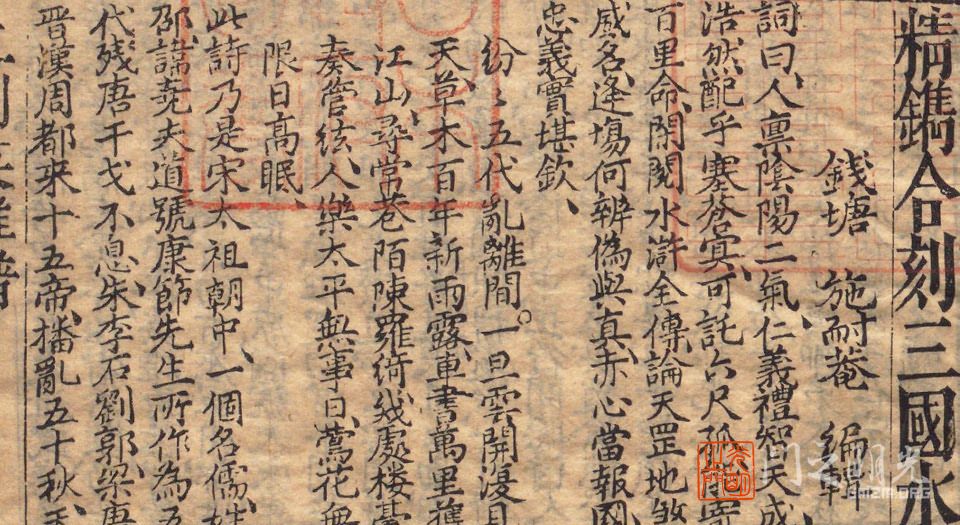 精鐫合刻三國水
錢塘 施耐菴 編輯
詞曰、人禀陰陽二氣、仁義禮智天成
浩然配乎塞蒼冥、可託六尺孤、能寄
百里命、閒閱水滸全傳、論天罡地煞
威名、逢場何辨偽與真、赤心當報國
忠義實堪欽、
紛〻五代亂離間。一旦雲開復見
天、草木百年新雨露、車書萬里舊
江山、尋常巷陌陳羅綺、幾處楼臺
奏管絃、人樂太平無事日、鶯花無
限日高眠、
此詩乃是宋太祖朝中、一個名儒、姓
邵、諱堯夫、道號康節先生所作、為五
代残唐干戈不息、朱李石劉郭、梁唐
晋漢周、都來十五帝、播亂五十秋、天
門分明光
SMZM.ORG